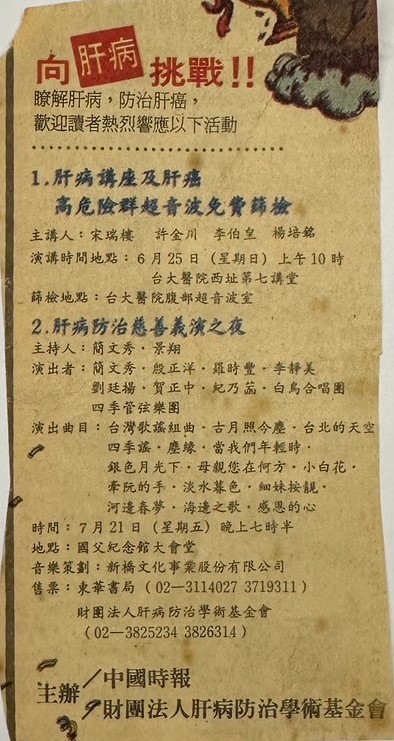 向肝病挑戰!!
瞭解肝病，防治肝癌，
歡迎讀者熱烈響應以下活動
1.肝病講座及肝癌
高危險群超音波免費篩檢
主講人：宋瑞樓 許金川 李伯皇 楊培銘
演講時間地點：6月25日（星期日）上午10時
台大醫院西址第七講堂
篩檢地點：台大醫院腹部超音波室
2.肝病防治慈善義演之夜
主持人：簡文秀·景翔
演出者：簡文秀·殷正洋·羅時豐·李靜美
劉廷揚·賀正中·紀乃菡·白鳥合唱團
四季管弦樂團
演出曲目：台灣歌謠組曲·古月照今塵·台北的天空
四季謠·塵緣·當我們年輕時·
銀色月光下·母親您在何方·小白花·
牽阮的手·淡水暮色·細妹按靚·
河邊春夢·海邊之歌·感恩的心
時間：7月21日（星期五）晚上七時半
地點：國父紀念館大會堂
音樂策劃：新橋文化事業股份有限公司
售票：東華書局（02—3114027 3719311）
財團法人肝病防治學術基金會
（02—3825234 3826314）
主辦／中國時報
財團法人肝病防治學術基金會